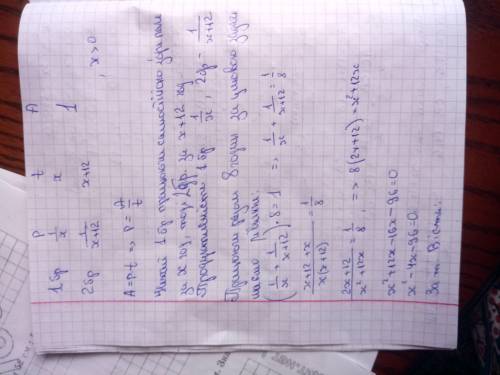 P t A
1 бр 1/x x 1
2 бр 1/x+12 x+12 , x>0
A=p·t => p=A/t
1 бр самостійно
за x год, тоді 2 бр за x+12 год.
Продуктивність 1 бр 1/x, 2 бр - 1/x+12
разом 8 годин за умовою
маємо рівняння:
(1/x + 1/x+12)·8=1 => 1/x + 1/x+12 = 1/8
x+12+x/x(x+12) = 1/8
2x+12/x²+12x = 1/8, => 8(2x+12)=x²+12x
x²+12x-16x-96=0
x²-4x-96=0
За т. Вієта: